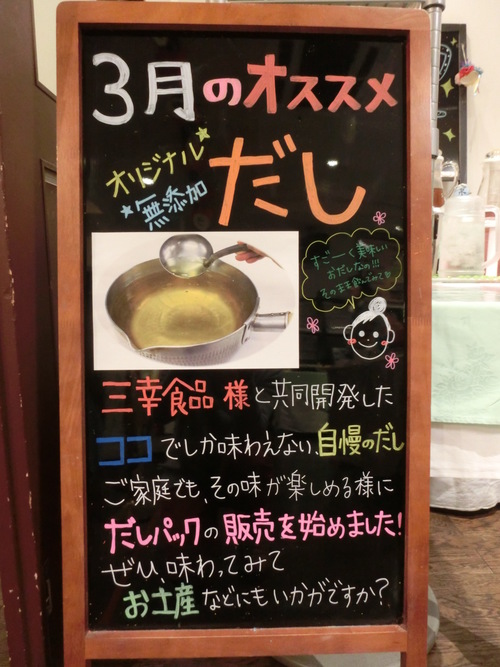 3月のオススメ
オリジナル
無添加
だし
すごーく美味しい
おだしなの!!!
そのまま飲んでみても
三幸食品 様と共同開発した
ココでしか味わえない、自慢のだし
ご家庭でも、その味が楽しめる様に
だしパックの販売を始めました!
ぜひ、味わってみて
お土産などにもいかがですか?